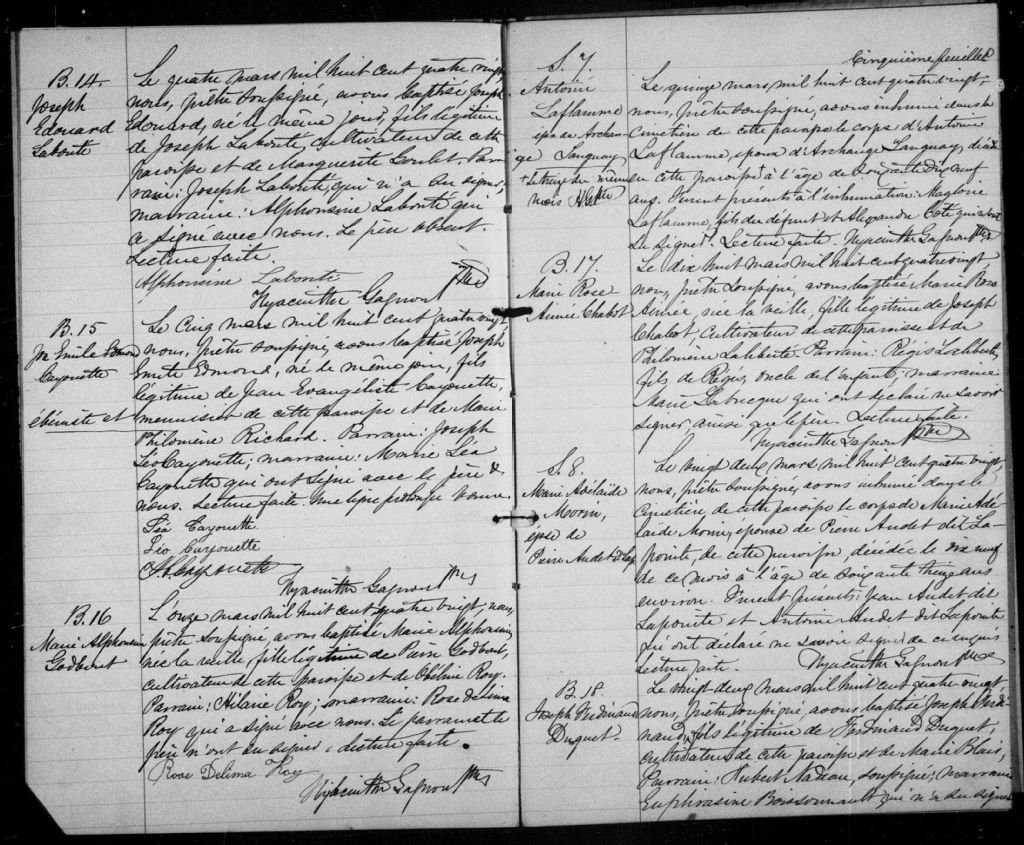 B.14.
Joseph
Edouard
Labonté
Le quatre mars mil huit cent quatre vingt
nous, prêtre soussigné, avons baptisé Joseph
Edouard, né le même jour, fils légitime
de Joseph Labonté, cultivateur de cette
paroisse et de Marguerite Goulet. Par
rain: Joseph Labonté, qui n'a su signer
marraine: Alphonsine Labonté qui
a signé avec nous. Le père absent.
Lecture faite.
Alphonsine Labonté
Hyacinthe Gagnon Ptre
B.15
Jos Emile Edmond
Cayouette
ébéniste et
Le cinq mars mil huit cent quatre vingt
nous, prêtre soussigné, avons baptisé Joseph
Emile Edmond, né le même jour, fils
légitime de Jean Evangéliste Cayouette,
menuisier de cette paroisse et de Marie
Philomène Richard. Parrain: Joseph
Léo Cayouette; marraine: Marie Léa
Cayouette qui ont signé avec le père &
nous. Lecture faite. Une ligne prolongée bonne.
Léa Cayouette
Léo Cayouette
Cayouette
Hyacinthe Gagnon Ptre
B.16
Marie Alphonsine
Godbout
L'onze mars mil huit cent quatre vingt, nous,
prêtre soussigné, avons baptisé Marie Alphonsine,
née la veille fille légitime de Pierre Godbout,
cultivateur de cette paroisse et de Obéline Roy.
Parrain: Hilaire Roy; marraine: Rose Delima
Roy qui a signé avec nous. Le parrain et le
père n'ont su signer. Lecture faite.
Rose Delima Roy
Hyacinthe Gagnon Ptre
Cinquième feuillet
S. 7.
Antoine
Laflamme
époux de Archan
ge Languay
+ le treize du même
mois H.G. Ptre
Le quinze mars mil huit cent quatre vingt,
nous, prêtre soussigné, avons inhumé dans le
cimetière de cette paroisse le corps d'Antoine
Laflamme, époux d'Archange Languay, décédé
de cette paroisse + à l'âge de soixante dix neuf
ans. Furent présents à l'inhumation: Magloire
Laflamme, fils du défunt et Alexandre Coté qui n'ont
su signer. Lecture faite. Hyacinthe Gagnon Ptre
B.17.
Marie Rose
Aimée Chabot
Le dix huit mars mil huit cent quatre vingt
nous, prêtre soussigné, avons baptisé Marie Rose
Aimée, née la veille, fille légitime de Joseph
Chabot, cultivateur de cette paroisse et de
Philomène Laliberté. Parrain: Régis Laliberté,
fils de Régis, oncle de l'enfant: marraine
Marie Labrecque qui ont déclaré ne savoir
signer ainsi que le père. Lecture faite.
Hyacinthe Gagnon Ptre
S. 8.
Marie Adélaïde
Morin,
épse de
Pierre Audet dit Lap
Le vingt deux mars mil huit cent quatre vingt,
nous, prêtre soussigné, avons inhumé dans le
cimetière, de cette paroisse le corps de Marie Adé
laïde Morin, épouse de Pierre Audet dit La-
pointe, de cette paroisse, décédée le dix neuf
de ce mois à l'âge de soixante treize ans
environ. Furent présents: Jean Audet dit
Lapointe et Antoine Audet dit Lapointe
qui ont déclaré ne savoir signer de ce requis
Lecture faite. Hyacinthe Gagnon Ptre
B.18.
Joseph Ferdinand
Duquet
Le vingt deux mars mil huit cent quatre vingt
nous, prêtre soussigné, avons baptisé Joseph Ferdi
nand, fils légitime de Ferdinand Duquet,
cultivateur de cette paroisse et de Marie Blais,
Parrain: Hubert Nadeau, soussigné; marraine
Euphrasine Boissonnault qui n'a su signer